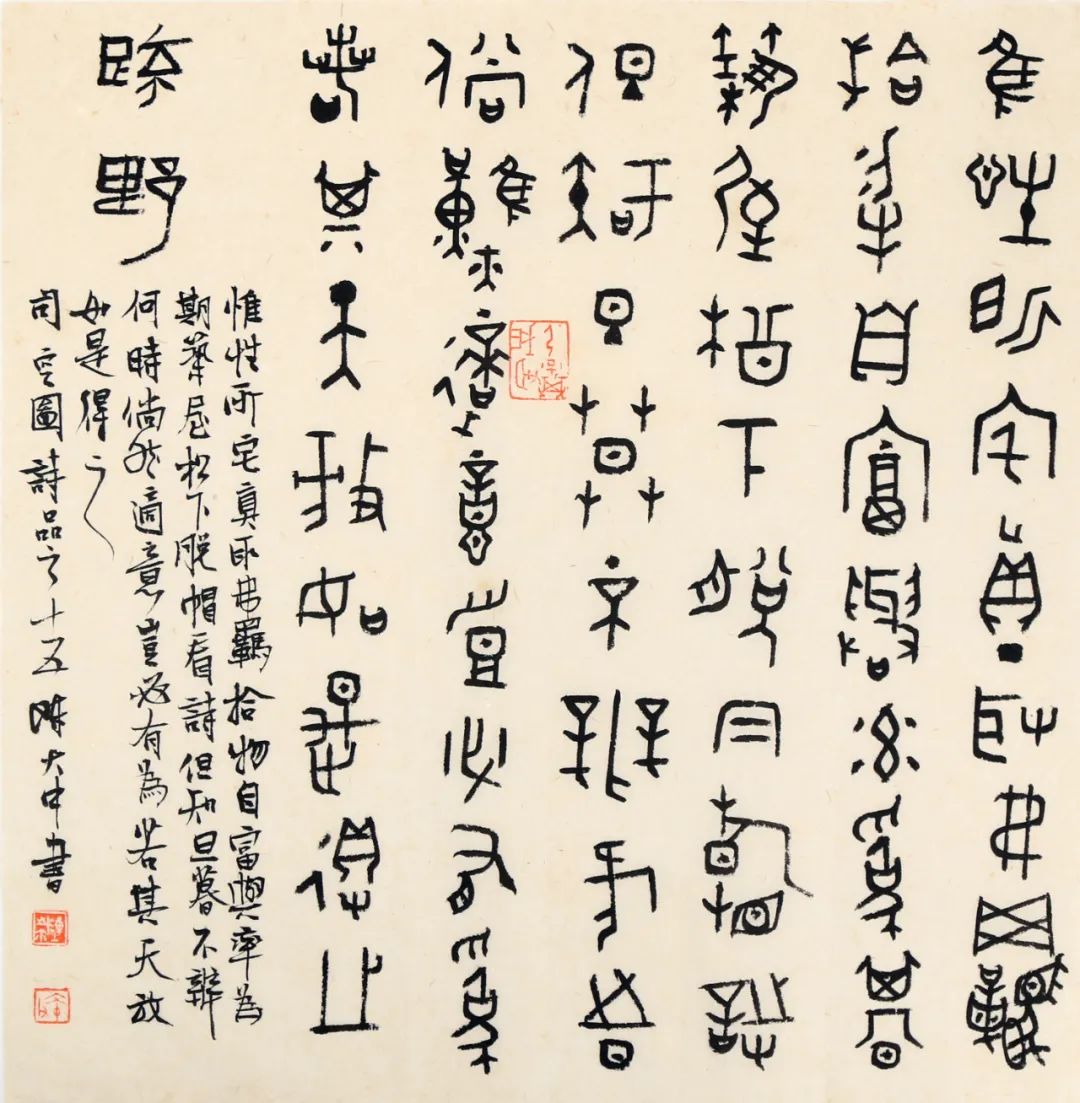 惟性所宅真取弗羈
拾物自富與率為期
築屋松下脱帽看詩
但知旦暮不辨何時
倘然適意豈必有為
若其天放如是得之
疏野
惟性所宅真取弗羈拾物自富與率為
期築屋松下脱帽看詩但知旦暮不辨
何時倘然適意豈必有為若其天放
如是得之
司空圖詩品之十五 陳大中書